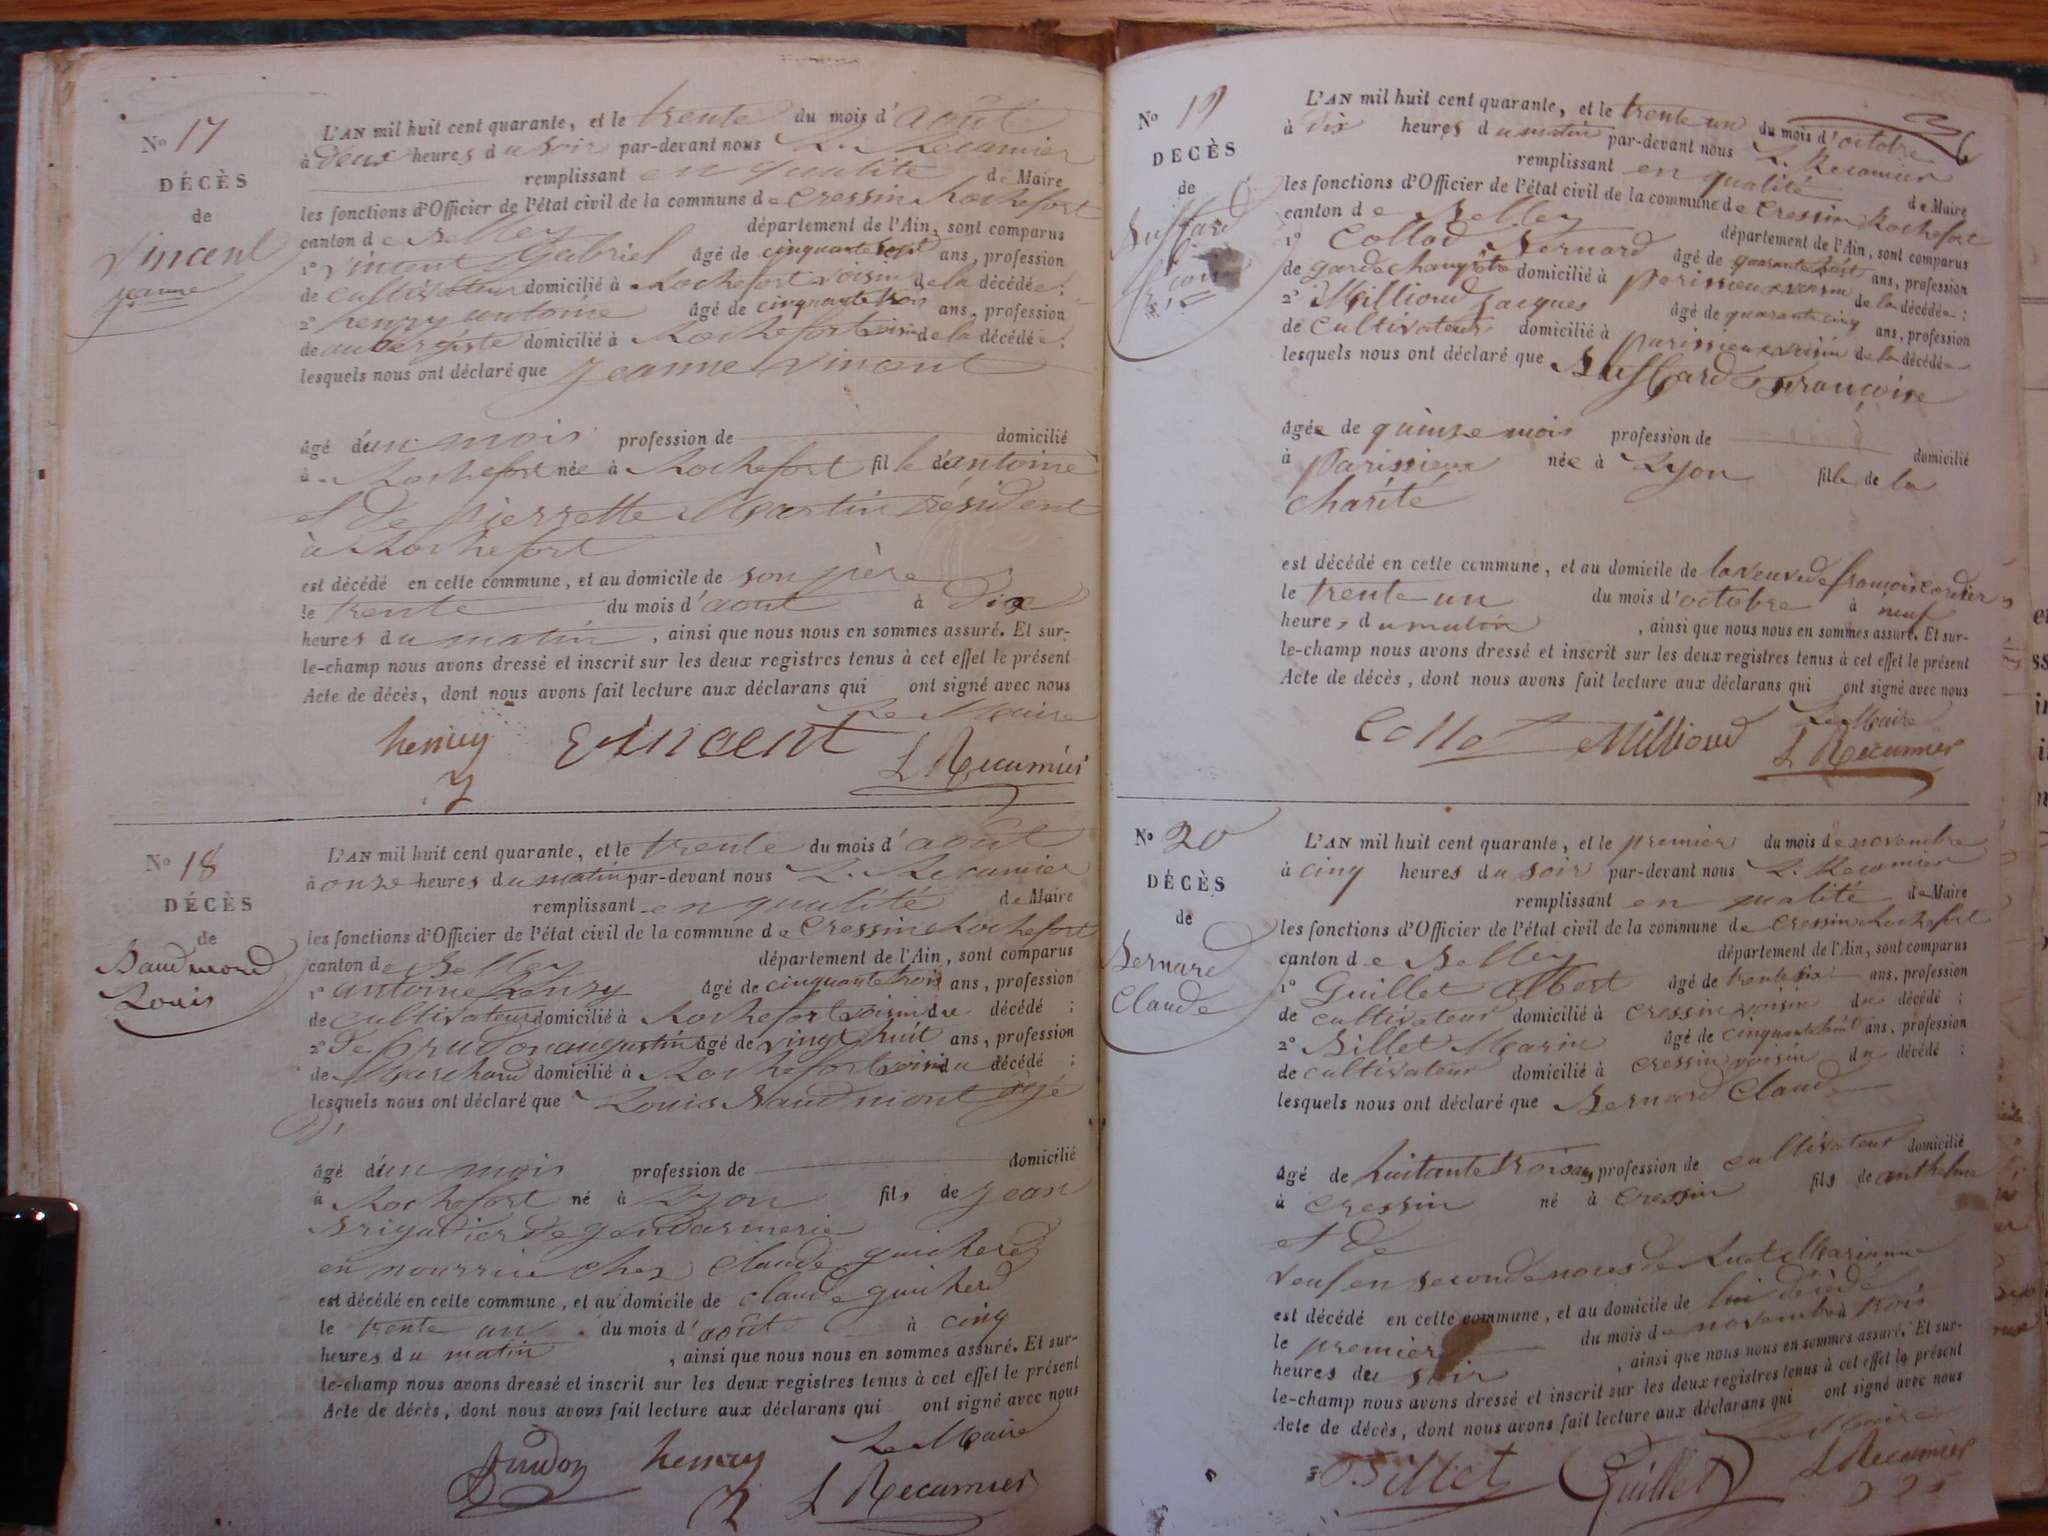 No 17
DÉCÈS
de
Vincent
jeanne
L'AN mil huit cent quarante, et le trente du mois d'août
à deux heures du soir par-devant nous L. Recamier
remplissant en qualité de Maire
les fonctions d'Officier de l'état civil de la commune de Cressin Rochefort
canton de Belley département de l'Ain, sont comparus
1° Vincent Gabriel âgé de cinquante sept ans, profession
de cultivateur domicilié à Rochefort voisin de la décédée;
2° henry antoine âgé de cinquante trois ans, profession
de aubergiste domicilié à Rochefort voisin de la décédée;
lesquels nous ont déclaré que Jeanne Vincent
âgé d'un mois profession de domicilié
à Rochefort née à Rochefort fille d'antoine
et de pierrette Martin résident
à Rochefort
est décédé en cette commune, et au domicile de son père
le trente du mois d'aout à dix
heures du matin, ainsi que nous nous en sommes assuré. Et sur-
le-champ nous avons dressé et inscrit sur les deux registres tenus à cet effet le présent
Acte de décès, dont nous avons fait lecture aux déclarans qui ont signé avec nous
Le Maire
henrey Vincent L Recamier
No 18
DÉCÈS
de
Baudmond
Louis
L'AN mil huit cent quarante, et le trente du mois d'août
à onze heures du matin par-devant nous L. Recamier
remplissant en qualité de Maire
les fonctions d'Officier de l'état civil de la commune de Cressin Rochefort
canton de Belley département de l'Ain, sont comparus
1° antoine henry âgé de cinquante trois ans, profession
de cultivateur domicilié à Rochefort voisin du décédé;
2° prudon augustin âgé de vingt huit ans, profession
de Marchand domicilié à Rochefort voisin du décédé;
lesquels nous ont déclaré que Louis Baudmont agé
d'
âgé d'un mois profession de domicilié
à Rochefort né à Lyon fils de jean
Brigadier de gendarmerie
en nourrice chez Claude guicherd
est décédé en cette commune, et au domicile de claude guicherd
le trente un du mois d'août à cinq
heures du matin, ainsi que nous nous en sommes assuré. Et sur-
le-champ nous avons dressé et inscrit sur les deux registres tenus à cet effet le présent
Acte de décès, dont nous avons fait lecture aux déclarans qui ont signé avec nous
Le Maire
prudon henrey L Recamier
No 19
DÉCÈS
de
Buffard
L'AN mil huit cent quarante, et le trente un du mois d'octobre
à dix heures du matin par-devant nous L. Recamier
remplissant en qualité de Maire
les fonctions d'Officier de l'état civil de la commune de Cressin Rochefort
canton de Belley département de l'Ain, sont comparus
1° Collod Bernard âgé de quarante huit ans, profession
de garde champêtre domicilié à parissieux voisin de la décédée;
2° Millioud Jacques âgé de quarante cinq ans, profession
de cultivateur domicilié à parissieux voisin de la décédée
lesquels nous ont déclaré que Buffard Francoise
âgée de quinze mois profession de domicilié
à parissieux née à Lyon fille de la
charité
est décédé en cette commune, et au domicile de la veuve de françois cordier
le trente un du mois d'octobre à neuf
heures du matin, ainsi que nous nous en sommes assuré. Et sur-
le-champ nous avons dressé et inscrit sur les deux registres tenus à cet effet le présent
Acte de décès, dont nous avons fait lecture aux déclarans qui ont signé avec nous
Le Maire
Collod Millioud L Recamier
No 20
DÉCÈS
de
Bernard
Claude
L'AN mil huit cent quarante, et le premier du mois de novembre
à cinq heures du soir par-devant nous L. Recamier
remplissant en qualité de Maire
les fonctions d'Officier de l'état civil de la commune de cressin Rochefort
canton de Belley département de l'Ain, sont comparus
1° Guillet Albert âgé de trente six ans, profession
de cultivateur domicilié à cressin voisin du décédé;
2° Billet Marin âgé de cinquante huit ans, profession
de cultivateur domicilié à cressin voisin du décédé;
lesquels nous ont déclaré que Bernard Claude
âgé de huitante trois ans profession de cultivateur domicilié
à cressin né à cressin fils de anthelme
et de
veuf en seconde noces de Marianne
est décédé en cette commune, et au domicile de lui décédé
le premier du mois de novembre à trois
heures du soir, ainsi que nous nous en sommes assuré. Et sur-
le-champ nous avons dressé et inscrit sur les deux registres tenus à cet effet le présent
Acte de décès, dont nous avons fait lecture aux déclarans qui ont signé avec nous
Le Maire
Billet Guillet L Recamier